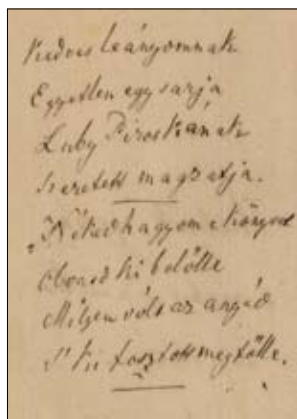 Kedves leányomnak
Egyetlen egy sarja,
Luby Piroskának
Szeretett magzatja.
„Néked hagyom e könyvet
Olvasd ki belőlle
Milyen vólt az anyád
S ki fosztott meg tőlle.